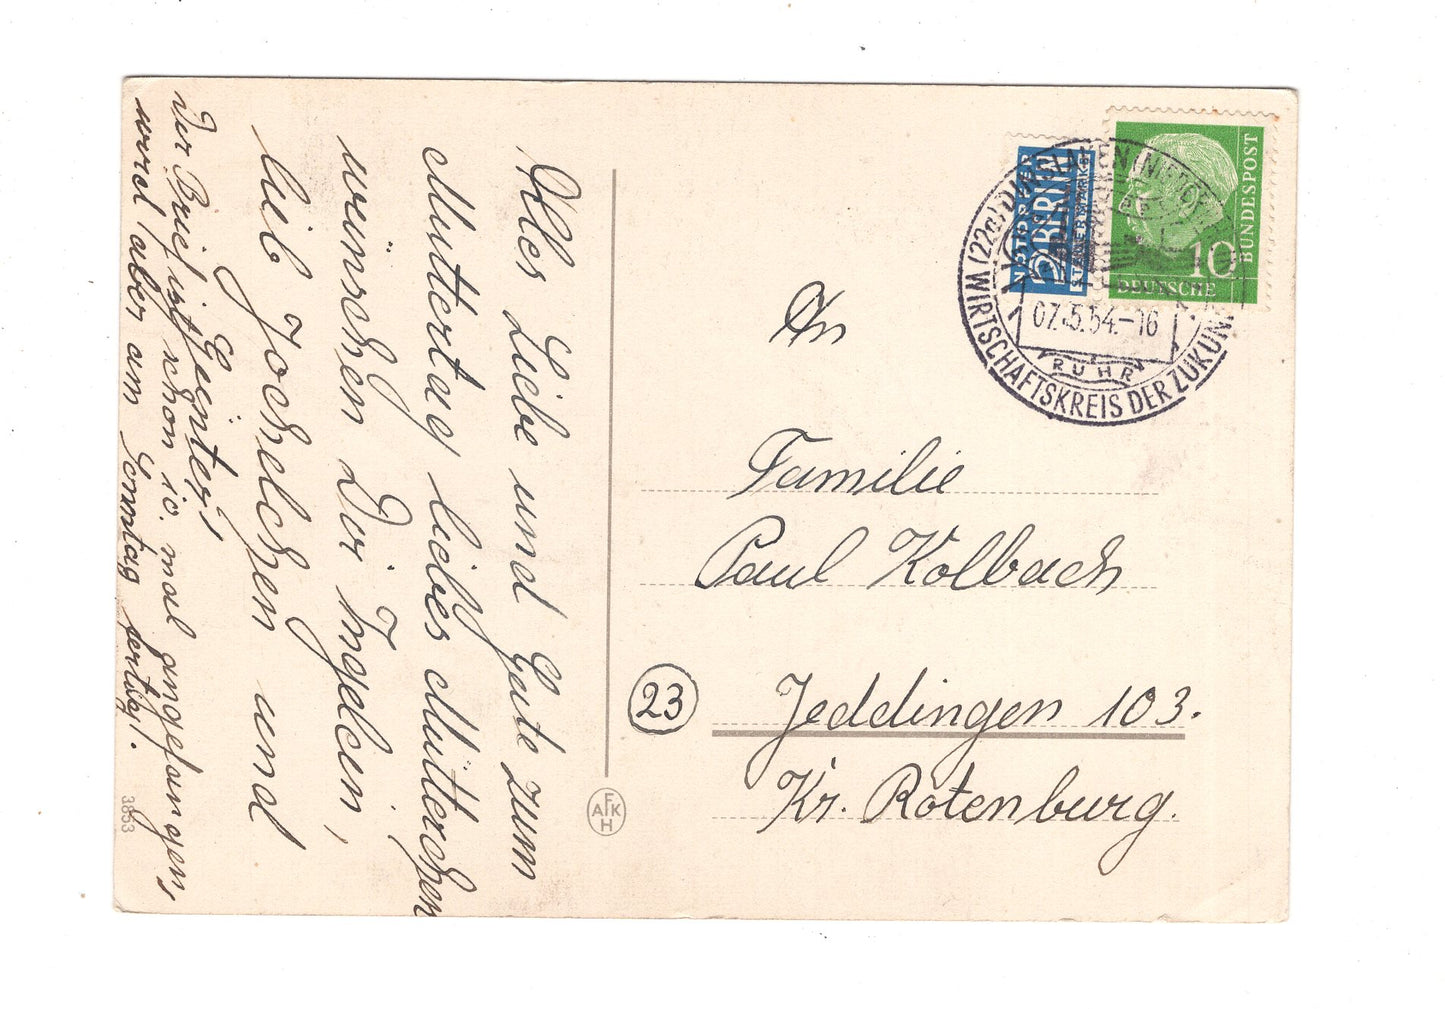 Alles Liebe und Gute zum
Muttertag liebes Mütterchen
wünschen Dir Ingelein,
lieb Jochelchen und
Günter!
Der Brief ist schon ic. mal angefangen,
werd aber am Sonntag fertig!.
3853
AFKH
NOTOPFER
2 BERLIN
STEUERMARKE
DEUTSCHE
BUNDESPOST
10
(22a) DINSLAKEN (NIEDERRH
WIRTSCHAFTSKREIS DER ZUKUNFT
07.5.54.-16
RUHR
An
Familie
Paul Kolbach
(23) Jeddingen 103.
Kr. Rotenburg.